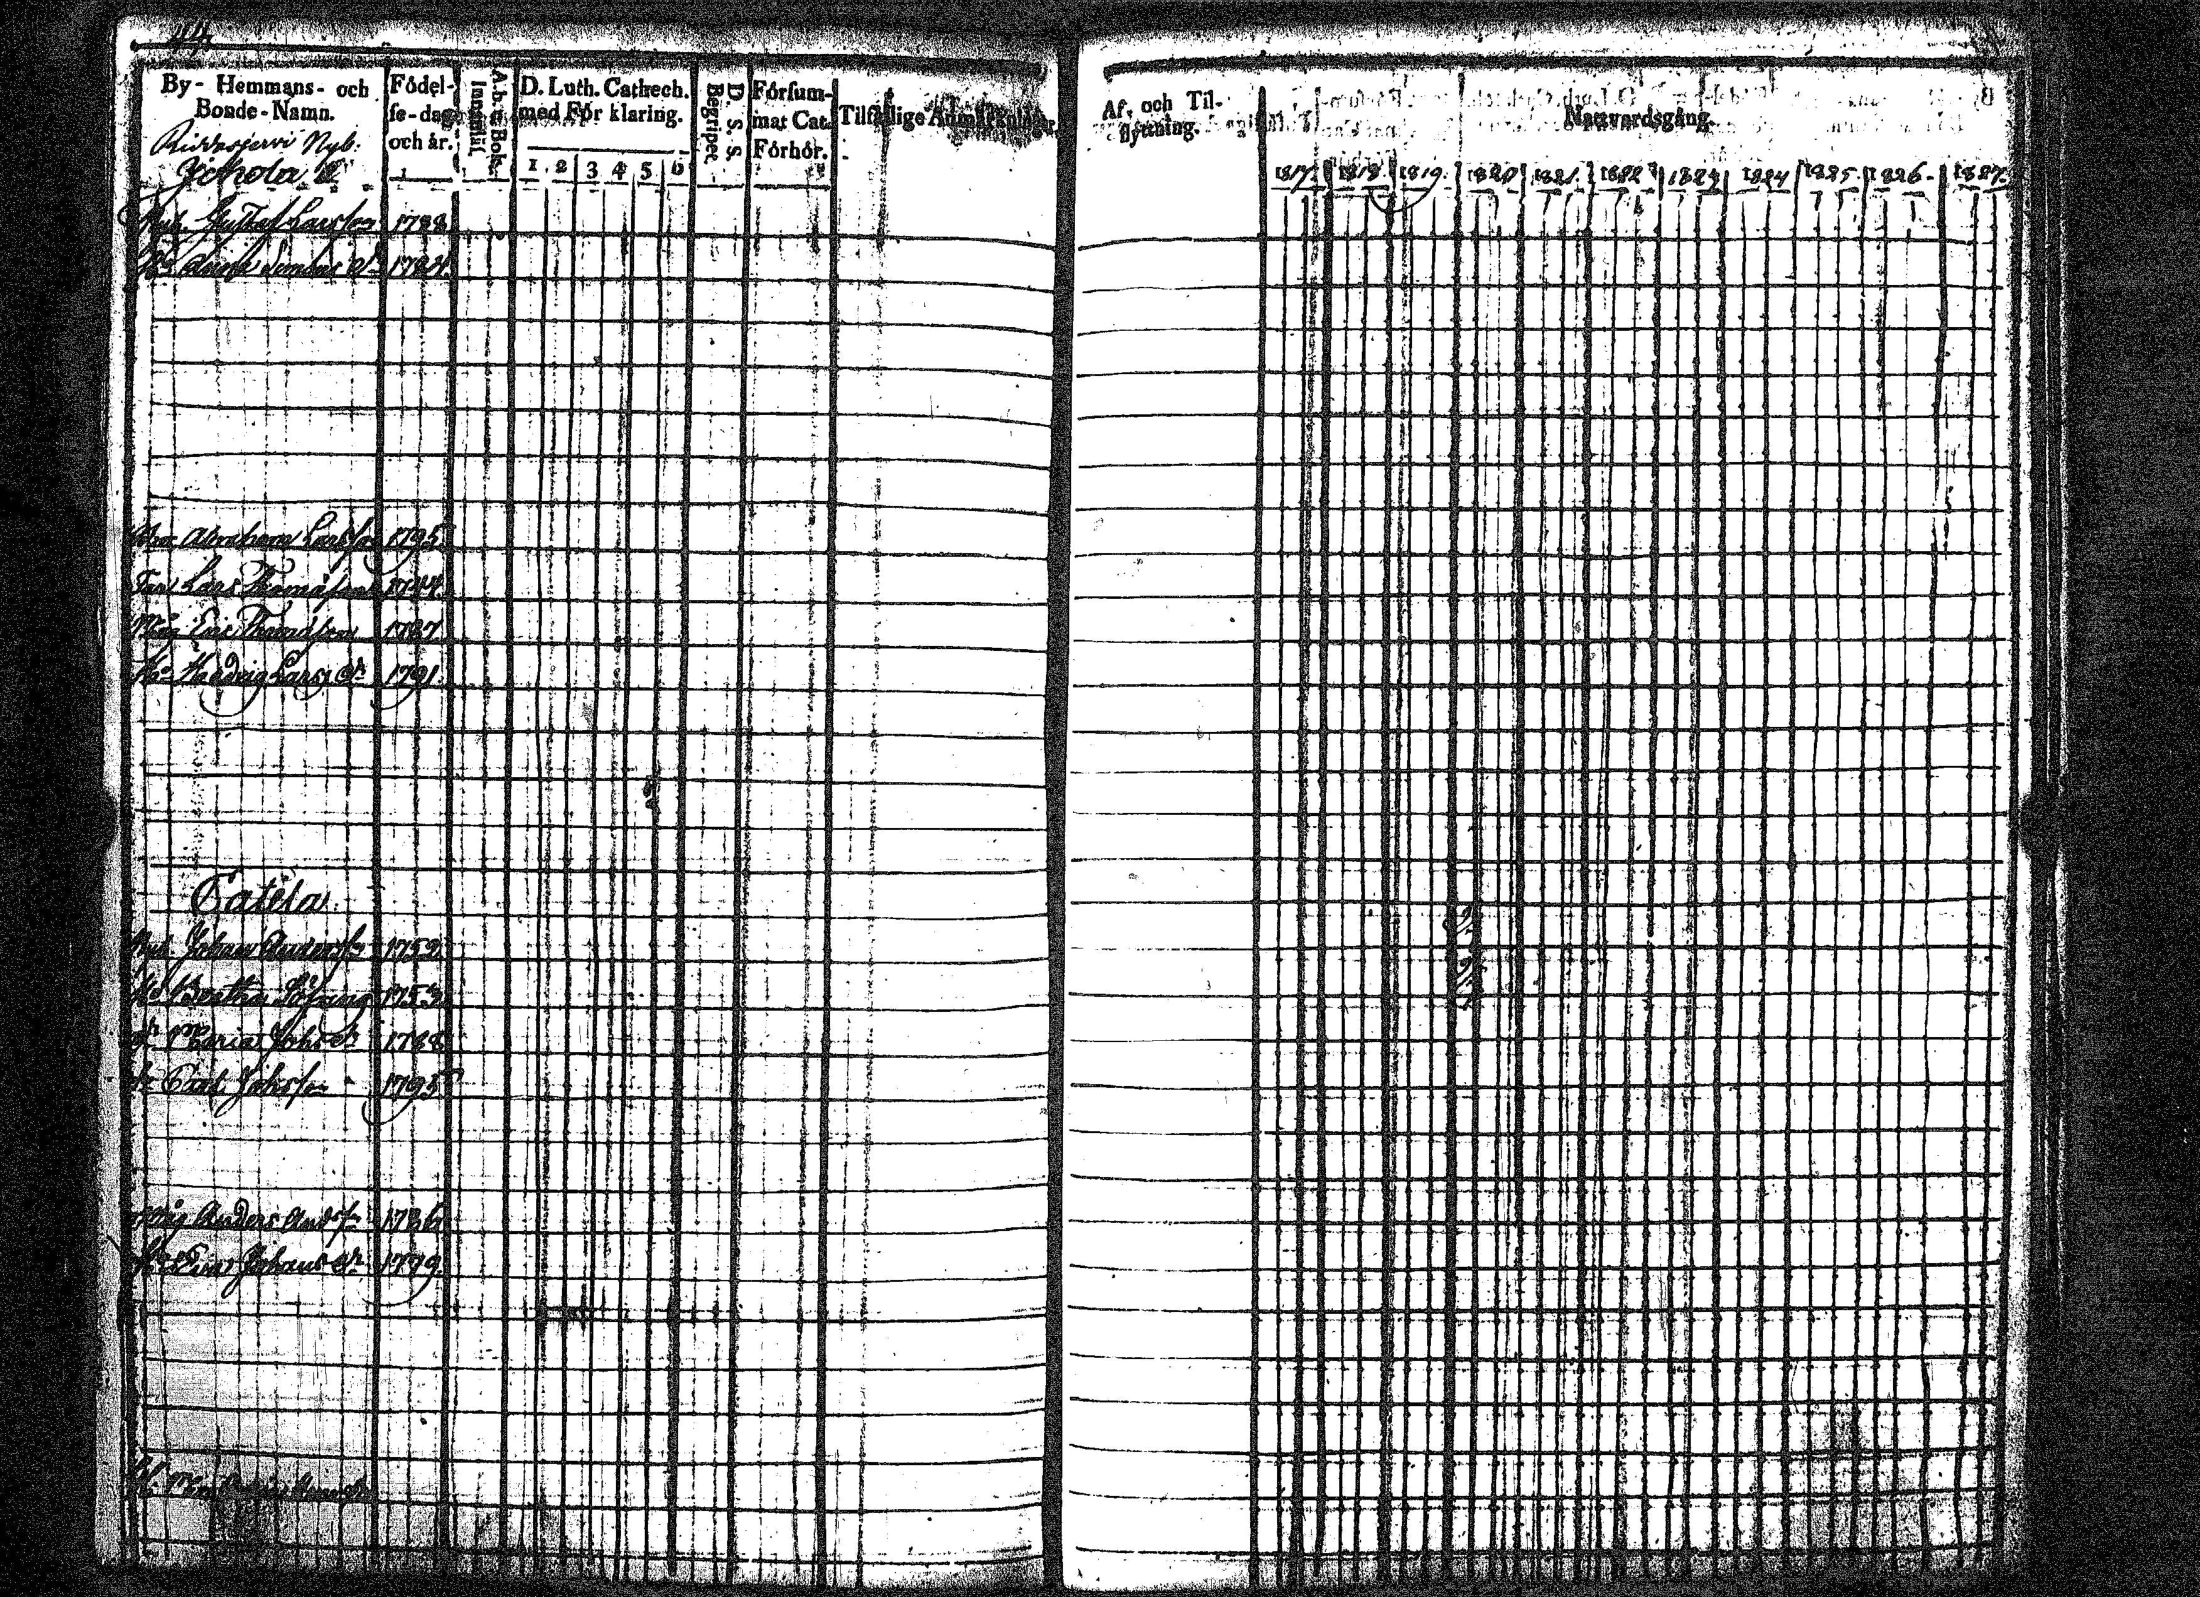 44.
By- Hemmans- och
Bonde-Namn.
Födel-
se-dag
och år.
A.b.c. Bok.
Innanläs.
D. Luth. Cathech.
med För klaring.
1 2 3 4 5 6
D. S. S.
Begripet.
Försum-
mat Cat.
Förhör.
Tilfällige Anmärkningar.
Nyb.
Jickola
Gustaf Larsson 1788
Hu Anna Simons dr
Abraham Larsson 1795
Lars Thomasson 1744
Måg Eric Thomasson 1787
Hu Hedvig Lars dr 1791
Catila
Nyb. Johan Andersson 1752
Hu Bertha 1753
dr Maria Johs dr 1788
Carl Johsson 1795
Måg Anders Andsson 1786
Hu Eva Johans dr 1799
Af- och Til-
flyttning.
Nattvardsgång.
1817. 1818. 1819. 1820 1821. 1822 1823 1824 1825. 1826. 1827.